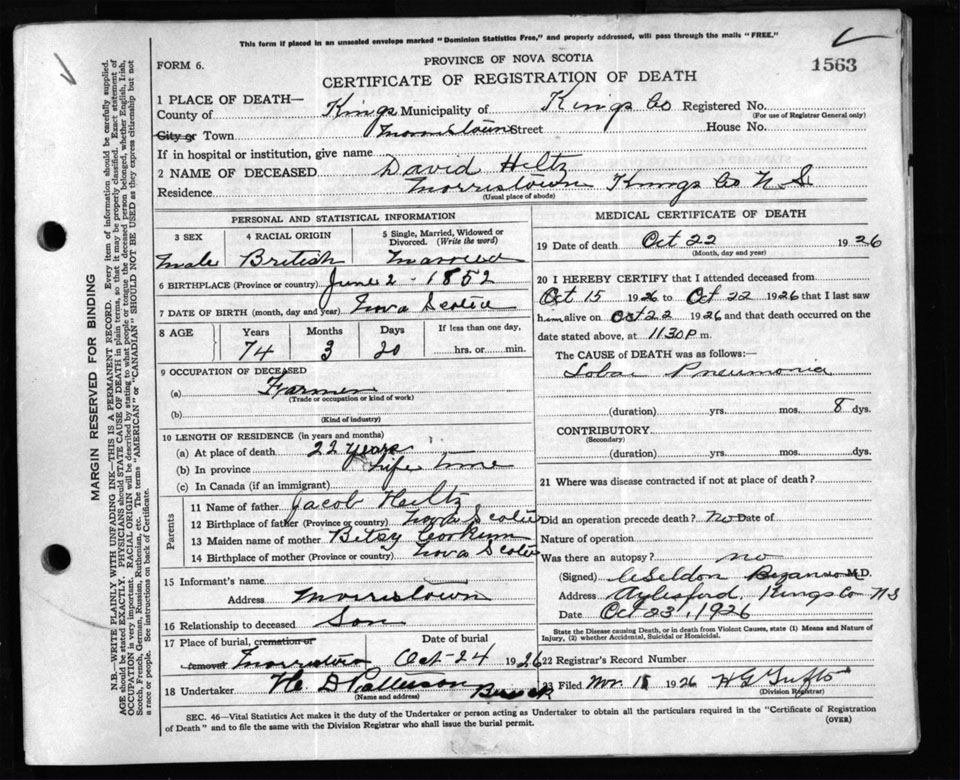 This form if placed in an unsealed envelope marked "Dominion Statistics Free," and properly addressed, will pass through the mails "FREE."
FORM 6.
PROVINCE OF NOVA SCOTIA
1563
CERTIFICATE OF REGISTRATION OF DEATH
1 PLACE OF DEATH—
County of Kings Municipality of Kings Co Registered No.
(For use of Registrar General only)
City or Town Morristown Street House No.
If in hospital or institution, give name
2 NAME OF DECEASED David Hiltz
Residence Morristown Kings Co N. S.
(Usual place of abode)
PERSONAL AND STATISTICAL INFORMATION
3 SEX 4 RACIAL ORIGIN 5 Single, Married, Widowed or Divorced. (Write the word)
Male British Married
6 BIRTHPLACE (Province or country) June 2 - 1852
7 DATE OF BIRTH (month, day and year) Nova Scotia
8 AGE Years Months Days If less than one day,
74 3 20 hrs. or min.
9 OCCUPATION OF DECEASED
(a) Farmer
(Trade or occupation or kind of work)
(b)
(Kind of industry)
10 LENGTH OF RESIDENCE (in years and months)
(a) At place of death 22 years
(b) In province Life time
(c) In Canada (if an immigrant)
Parents
11 Name of father Jacob Hiltz
12 Birthplace of father (Province or country) Nova Scotia
13 Maiden name of mother Bitsy Corkum
14 Birthplace of mother (Province or country) Nova Scotia
15 Informant's name
Address Morristown
16 Relationship to deceased Son
17 Place of burial, cremation or removal Morristown
Date of burial Oct - 24 1926
18 Undertaker H. D Patterson Berwick
(Name and address)
MEDICAL CERTIFICATE OF DEATH
19 Date of death Oct 22 1926
(Month, day and year)
20 I HEREBY CERTIFY that I attended deceased from
Oct 15 1926 to Oct 22 1926 that I last saw
him alive on Oct 22 1926 and that death occurred on the
date stated above, at 11.30 P m.
The CAUSE OF DEATH was as follows:—
Lobar Pneumonia
(duration) yrs. mos. 8 dys.
CONTRIBUTORY
(Secondary)
(duration) yrs. mos. dys.
21 Where was disease contracted if not at place of death?
Did an operation precede death? no Date of
Nature of operation
Was there an autopsy? no
(Signed) M.D.
Address Aylesford, Kings Co N S
Date Oct 23, 1926
State the Disease causing Death, or in death from Violent Causes, state (1) Means and Nature of
Injury, (2) whether Accidental, Suicidal or Homicidal.
22 Registrar's Record Number
23 Filed Nov 1926
(Division Registrar)
SEC. 46—Vital Statistics Act makes it the duty of the Undertaker or person acting as Undertaker to obtain all the particulars required in the "Certificate of Registration
of Death" and to file the same with the Division Registrar who shall issue the burial permit.
(OVER)
MARGIN RESERVED FOR BINDING
N.B.—WRITE PLAINLY WITH UNFADING INK—THIS IS A PERMANENT RECORD. Every item of information should be carefully supplied.
AGE should be stated EXACTLY. PHYSICIANS should STATE CAUSE OF DEATH in plain terms, so that it may be properly classified. Exact statement of
OCCUPATION is very important. RACIAL ORIGIN will be described by stating to what people or tongue the deceased person belonged, whether English, Irish,
Scotch, French, German, Russian, Ruthenian, etc. The terms "AMERICAN" or "CANADIAN" SHOULD NOT BE USED as they express citizenship but not
a race or people. See instructions on back of Certificate.